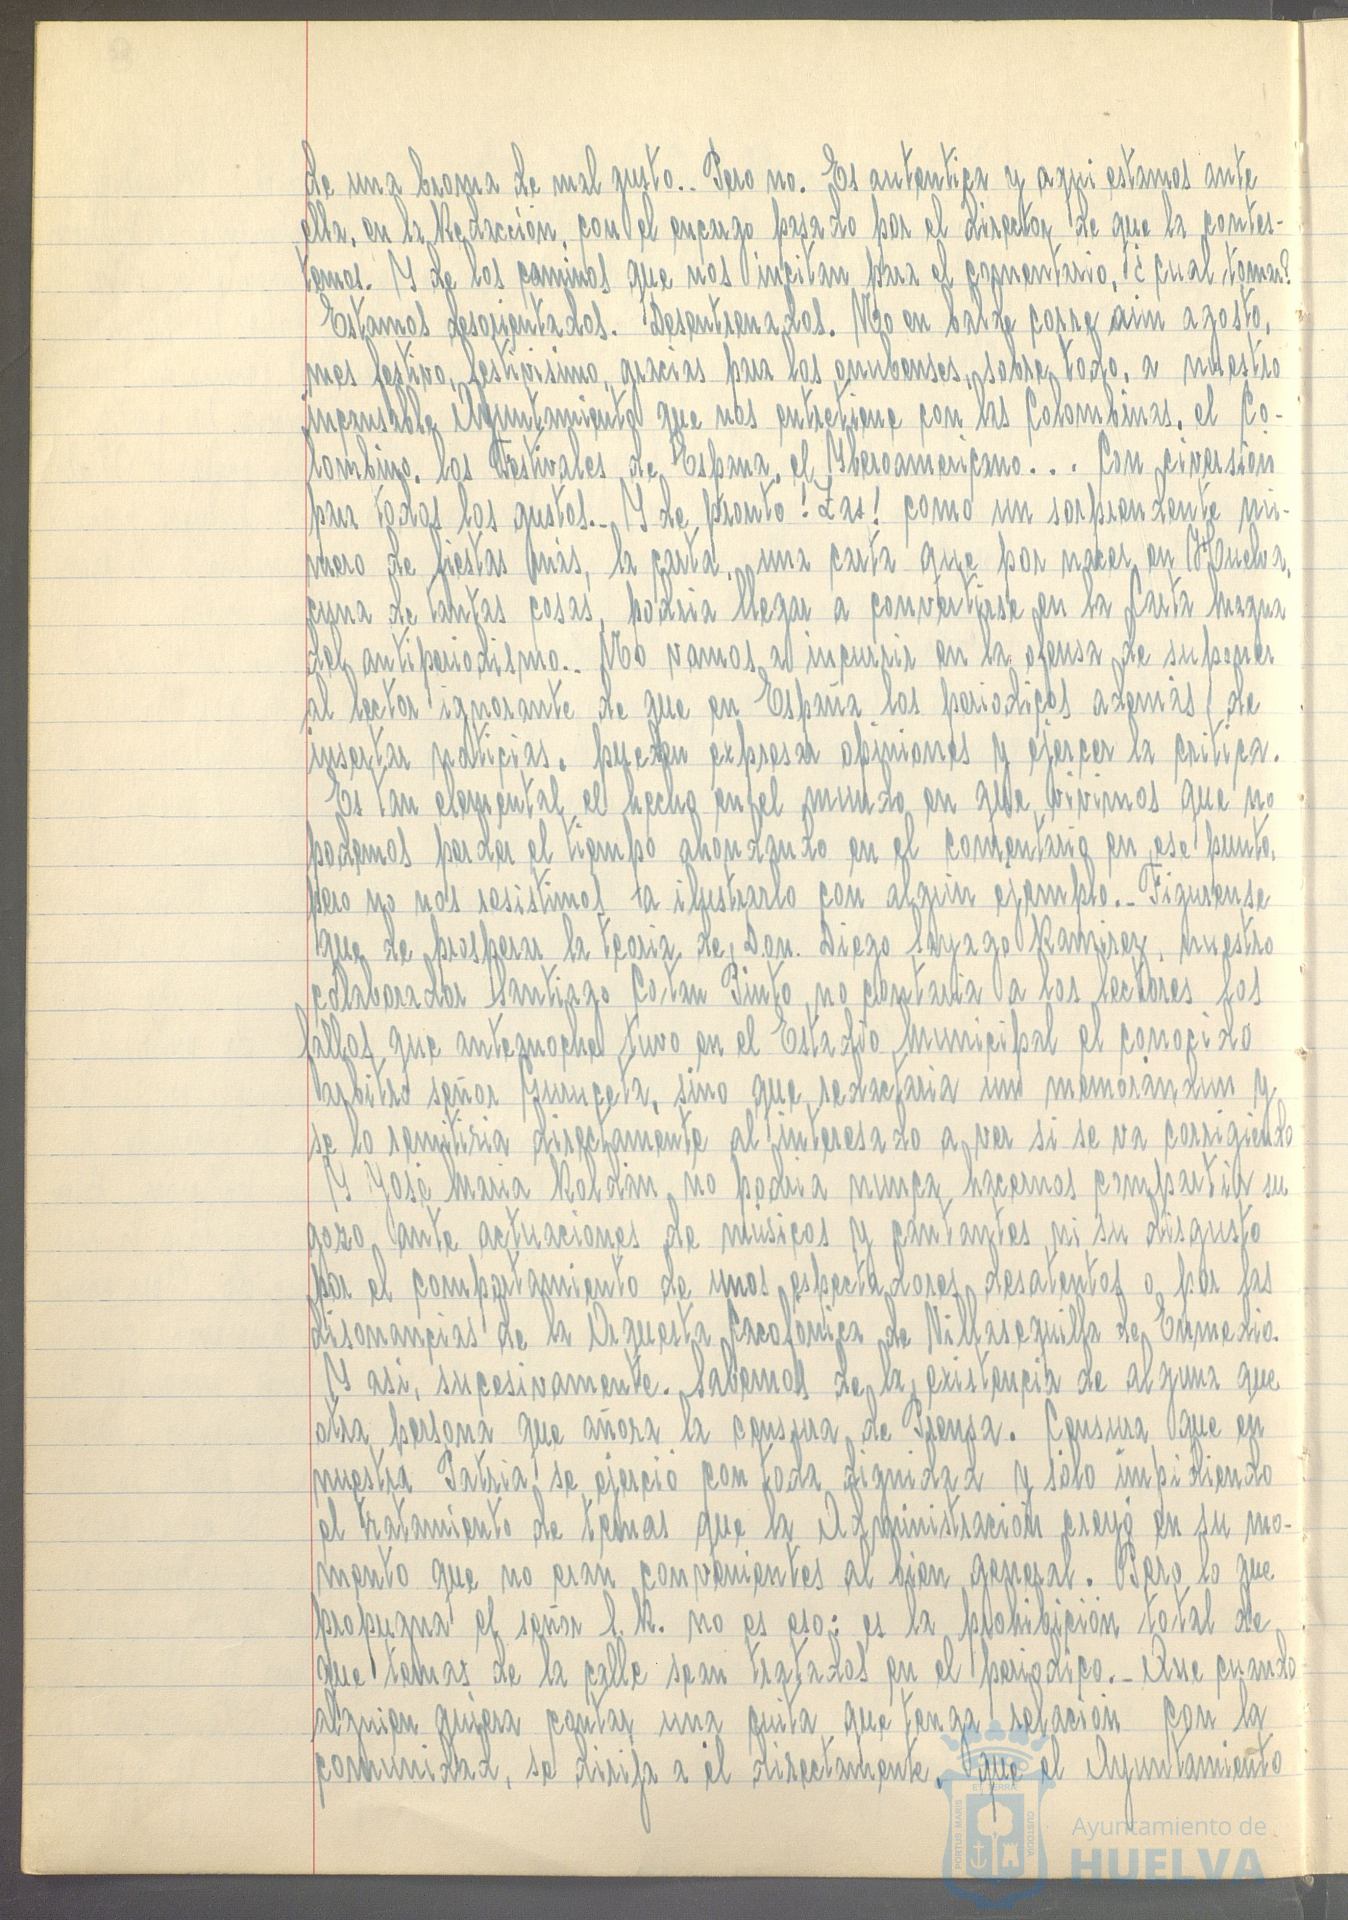 de una broma de mal gusto.. Pero no. Es autentica y aqui estamos ante
ella, en la Redacción, con el encargo pasado por el director de que la contes-
temos. Y de los caminos que nos incitan para el comentario, ¿cual tomar?
Estamos desorientados. Desentrenados. No en balde corre aún agosto,
mes festivo, festivisimo, gracias para los onubenses, sobre todo, a nuestro
incansable Ayuntamiento que nos entretiene con las Colombinas, el Co-
lombino, los Festivales de España, el Yberoamericano... Con diversión
para todos los gustos.- Y de pronto !Zas! como un sorprendente nú-
mero de fiestas más, la carta, una carta que por nacer en Huelva,
cuna de tantas cosas, podria llegar a convertirse en la Carta Magna
del antiperiodismo.. No vamos a incurrir en la ofensa de suponer
al lector ignorante de que en España los periodicos además de
insertar noticias, pueden expresar opiniones y ejercer la critica.
Es tan elemental el hecho en el mundo en que vivimos que no
podemos perder el tiempo ahondando en el comentario en ese punto,
pero no nos resistimos a ilustrarlo con algún ejemplo.- Figurense
que de prosperar la teoria de Don Diego Sayago Ramirez, nuestro
colaborador Santiago Cotan Pinto no contaria a los lectores los
fallos que anteanoche tuvo en el Estadio Municipal el conocido
arbitro señor Guruceta, sino que redactaria un memorandun y
se lo remitiria directamente al interesado a ver si se va corrigiendo
Y José Maria Roldán no podria nunca hacernos compartir su
gozo ante actuaciones de músicos y cantantes ni su disgusto
por el comportamiento de unos espectadores desatentos o por las
disonancias de la Orquesta Cacofonica de Villasequilla de Enmedio.
Y asi, sucesivamente. Sabemos de la existencia de alguna que
otra persona que añora la censura de Prensa. Censura que en
nuestra Patria se ejerció con toda dignidad y sólo impidiendo
el tratamiento de temas que la Administración creyó en su mo-
mento que no eran convenientes al bien general. Pero lo que
propugna el señor S. R. no es eso: es la prohibición total de
que temas de la calle sean tratados en el periodico.- Que cuando
alguien quiera contar una cuita que tenga relación con la
comunidad, se dirija a él directamente, que el Ayuntamiento
PORTUS MARIS
ET TERRAE
CUSTODIA
Ayuntamiento de
HUELVA